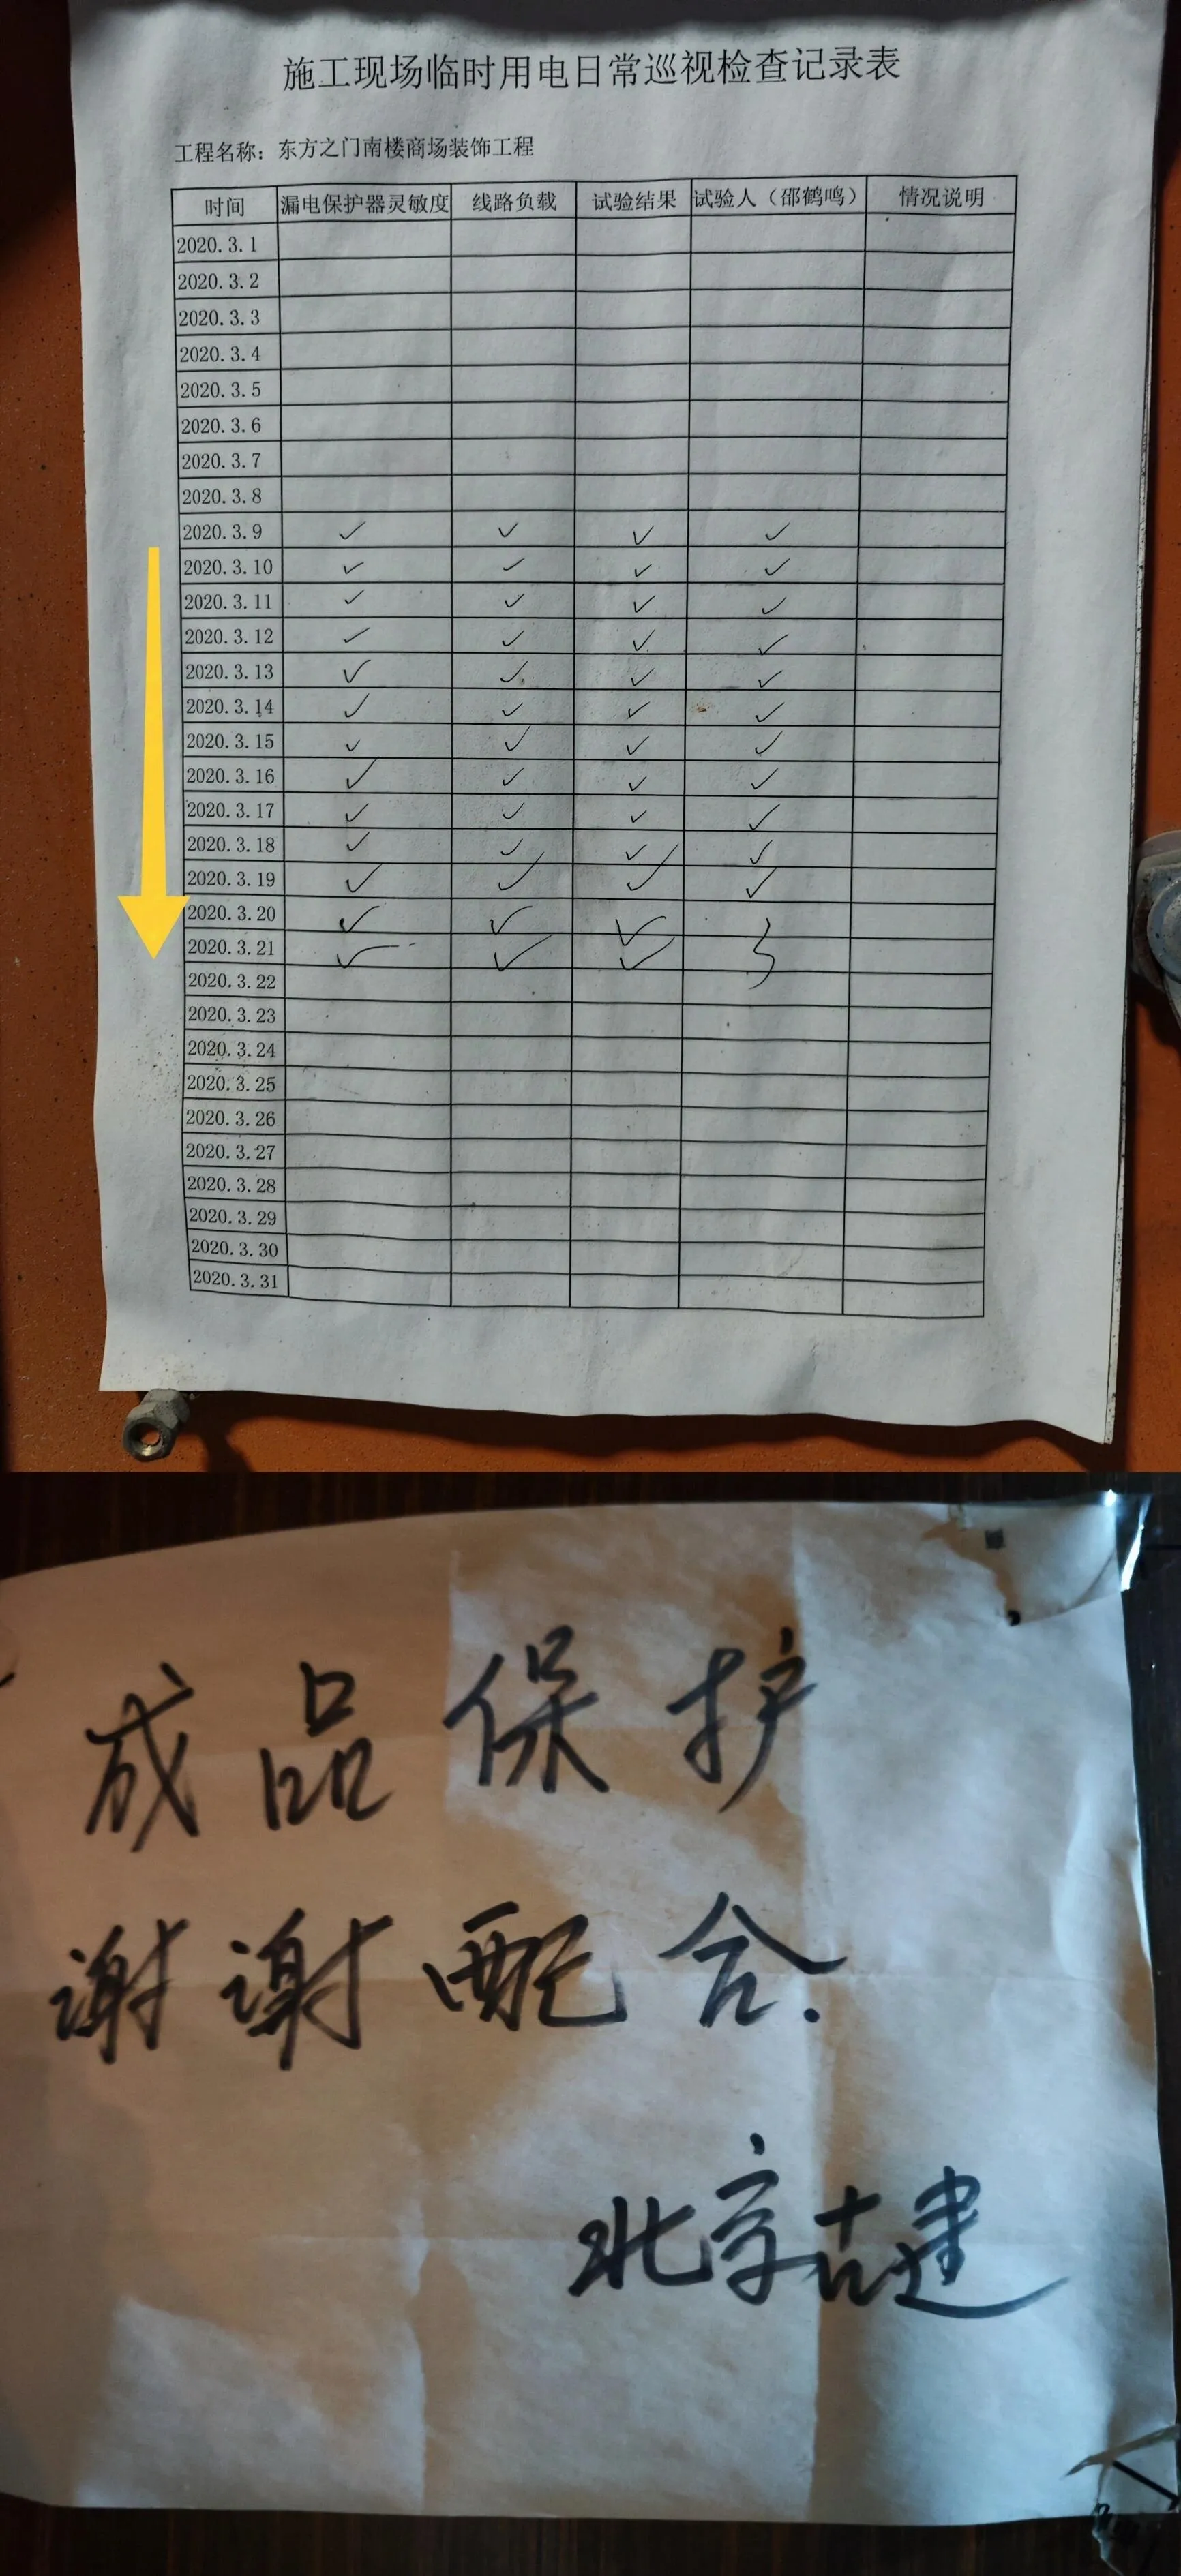 施工现场临时用电日常巡视检查记录表
工程名称：东方之门南楼商场装饰工程
时间 漏电保护器灵敏度 线路负载 试验结果 试验人（邵鹤鸣） 情况说明
2020.3.1
2020.3.2
2020.3.3
2020.3.4
2020.3.5
2020.3.6
2020.3.7
2020.3.8
2020.3.9 ✓ ✓ ✓ ✓
2020.3.10 ✓ ✓ ✓ ✓
2020.3.11 ✓ ✓ ✓ ✓
2020.3.12 ✓ ✓ ✓ ✓
2020.3.13 ✓ ✓ ✓ ✓
2020.3.14 ✓ ✓ ✓ ✓
2020.3.15 ✓ ✓ ✓ ✓
2020.3.16 ✓ ✓ ✓ ✓
2020.3.17 ✓ ✓ ✓ ✓
2020.3.18 ✓ ✓ ✓ ✓
2020.3.19 ✓ ✓ ✓ ✓
2020.3.20 ✓ ✓ ✓
2020.3.21 ✓ ✓ ✓
2020.3.22
2020.3.23
2020.3.24
2020.3.25
2020.3.26
2020.3.27
2020.3.28
2020.3.29
2020.3.30
2020.3.31
成品保护
谢谢配合.
北京古建